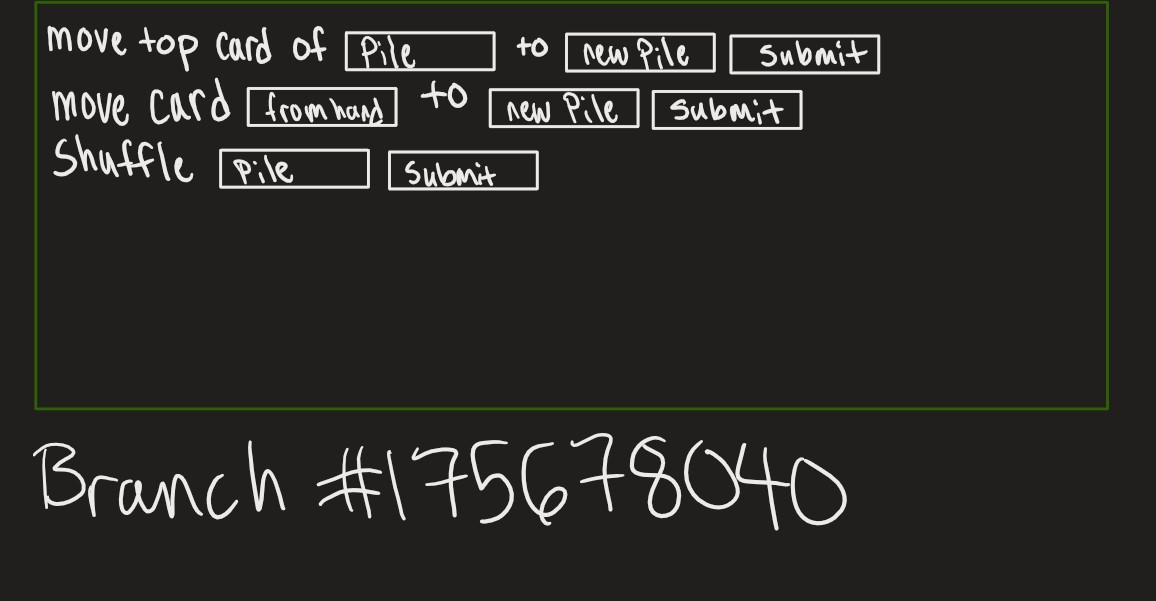 move top card of Pile to new Pile Submit
move card from hand to new Pile Submit
Shuffle Pile Submit
Branch #175678040